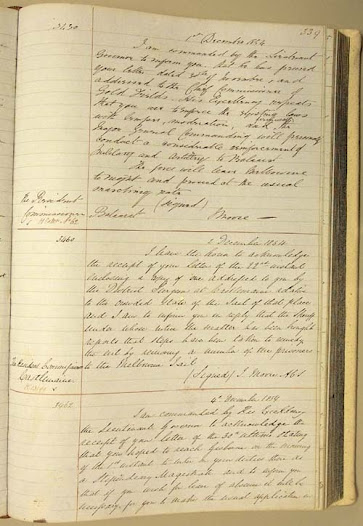 339
3430
1st December 1854
I am commanded by the Lieutenant
Governor to inform you that he has perused
your letter dated 30th of November and
addressed to the Chief Commissioner of
Gold Fields. His Excellency requests
that you are to enforce the existing laws
with temper, moderation, and firmness. The
Major General Commanding will personally
conduct a considerable reinforcement of
Military and Artillery to Ballarat
The force will leave Melbourne
to night and proceed at the usual
marching rate
(Signed)
The Resident
Commissioner
Ballarat
Moore
3460
2 December 1854
I have the honor to acknowledge
the receipt of your letter of the 22nd instant
enclosing a copy of one addressed to you by
the Colonial Surgeon at Castlemaine relative
to the crowded state of the Gaol at that place
and I am to inform you in reply that the Sheriff
under whose notice the matter has been brought
reports that steps have been taken to remedy
the evil by removing a number of the prisoners
to the Melbourne Gaol
The Resident Commissioner
Castlemaine
(Signed) J. Moore A.C.S.
4th December 1854
I am commanded by His Excellency
the Lieutenant Governor to acknowledge the
receipt of your letter of the 30th ultimo stating
that you hoped to reach Geelong on the morning
of the 1st instant to enter on your duties there as
a Stipendiary Magistrate and to inform you
that if you wish for leave of absence it will be
necessary for you to make the usual application in